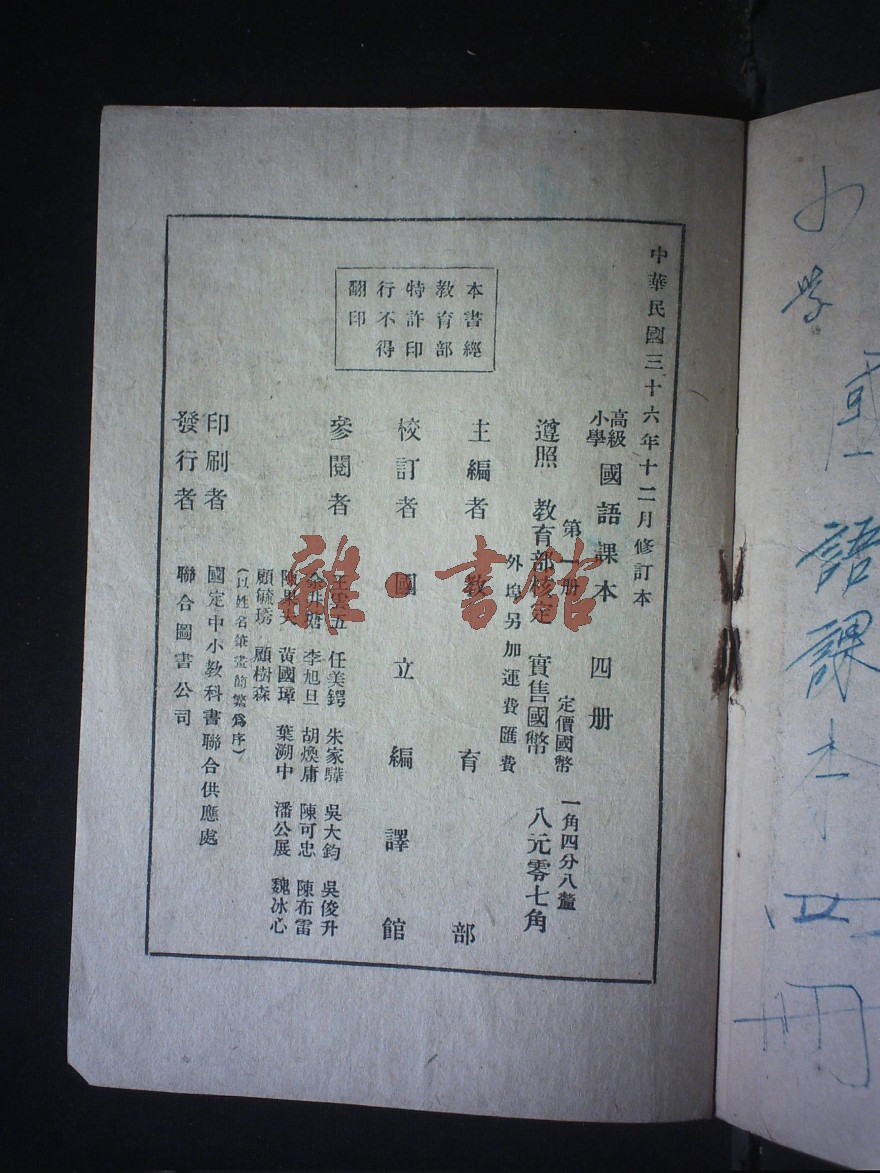 中華民國三十六年十二月修訂本
高級小學 國語課本 四册
第一册 定價國幣 一角四分八釐
遵照 教育部核定 實售國幣 八元零七角
外埠另加運費匯費
主編者 教育部
校訂者 國立編譯館
參閱者 王雲五 任美鍔 朱家驊 吳大鈞 吳俊升
余井塘 李旭旦 胡煥庸 陳可忠 陳布雷
陳果夫 黃國璋 葉溯中 潘公展 魏冰心
顧毓琇 顧樹森
(以姓名筆畫簡繁爲序)
印刷者 國定中小教科書聯合供應處
發行者 聯合圖書公司
本書經
教育部
特許印
行不得
翻印
雜·書館
小学 國語課本 四冊